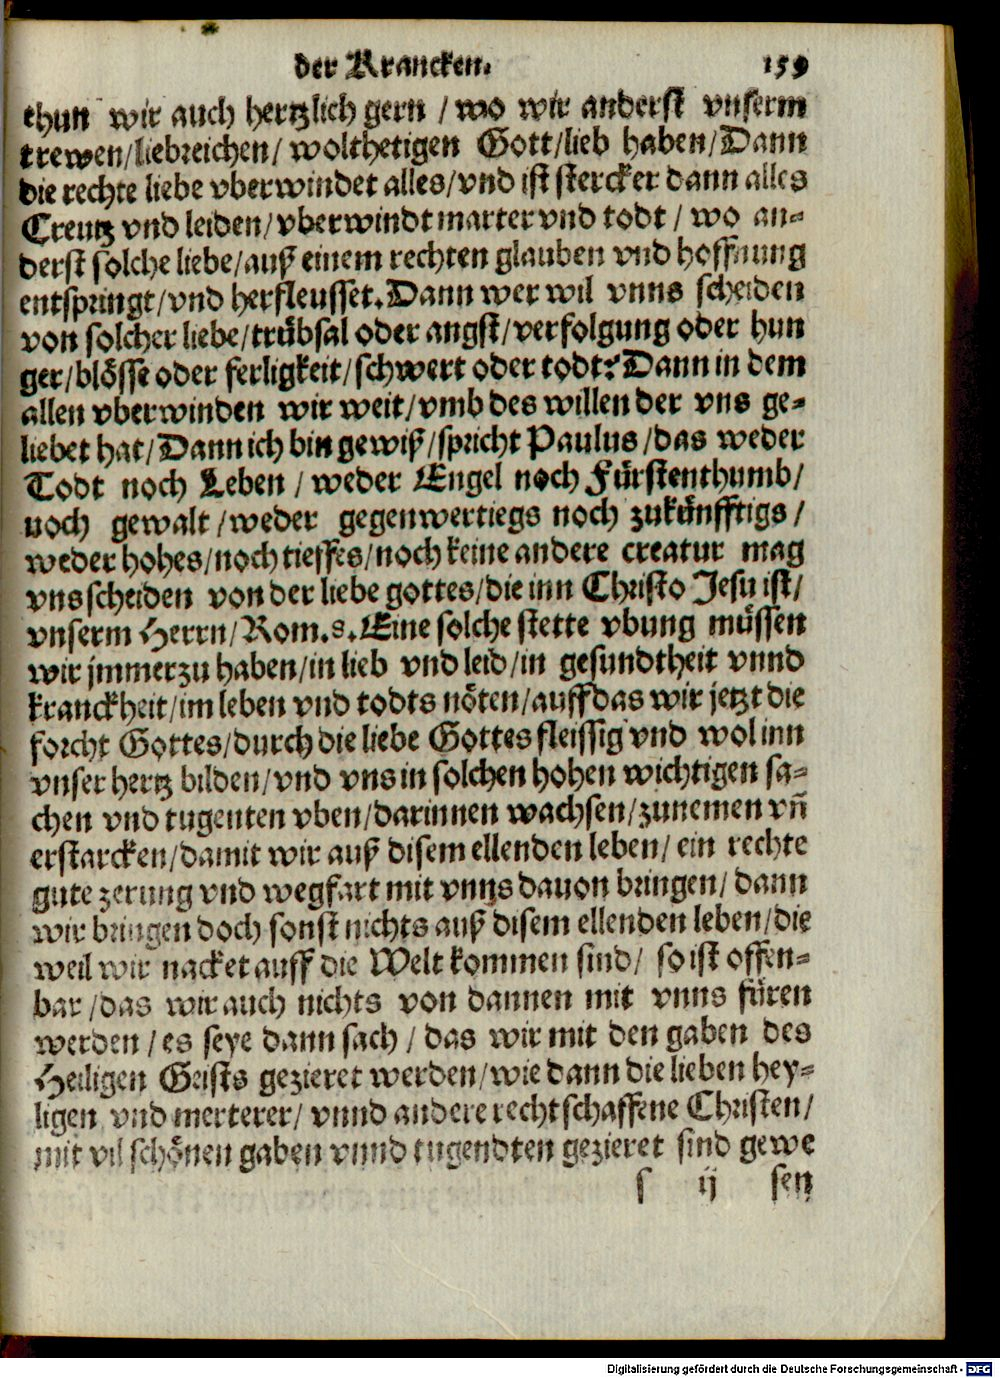 der Krancken. 159
thun wir auch hertzlich gern / wo wir anderst vnserm
trewen/liebreichen/ wolthetigen Gott/lieb haben/Dann
die rechte liebe vberwindet alles/vnd ist stercker dann alles
Creutz vnd leiden/vberwindt marter vnd todt / wo an-
derst solche liebe/auß einem rechten glauben vnd hoffnung
entspringt/vnd herfleusset. Dann wer wil vnns scheiden
von solcher liebe/trübsal oder angst/verfolgung oder hun
ger/blösse oder ferligkeit/schwert oder todt? Dann in dem
allen vberwinden wir weit/vmb des willen der vns ge-
liebet hat/Dann ich bin gewiß/spricht Paulus/das weder
Todt noch Leben / weder Engel noch Fürstenthumb/
noch gewalt /weder gegenwertiegs noch zukünfftigs /
weder hohes/noch tieffes/noch keine andere creatur mag
vns scheiden von der liebe gottes/die inn Christo Jesu ist/
vnserm Herrn/Rom.8. Eine solche stette vbung müssen
wir jmmerzu haben/in lieb vnd leid/in gesundtheit vnnd
kranckheit/im leben vnd todts nöten/auff das wir jetzt die
forcht Gottes/durch die liebe Gottes fleissig vnd wol inn
vnser hertz bilden/vnd vns in solchen hohen wichtigen sa-
chen vnd tugenten vben/darinnen wachsen/zunemen vñ
erstarcken/damit wir auß disem ellenden leben/ ein rechte
gute zerung vnd wegfart mit vnns dauon bringen/ dann
wir bringen doch sonst nichts auß disem ellenden leben/die
weil wir nacket auff die Welt kommen sind/ so ist offen-
bar /das wir auch nichts von dannen mit vnns füren
werden / es seye dann sach / das wir mit den gaben des
Heiligen Geists gezieret werden/wie dann die lieben hey-
ligen vnd merterer/ vnnd andere rechtschaffene Christen/
mit vil schönen gaben vnnd tugendten gezieret sind gewe
s ij sen
Digitalisierung gefördert durch die Deutsche Forschungsgemeinschaft - DFG